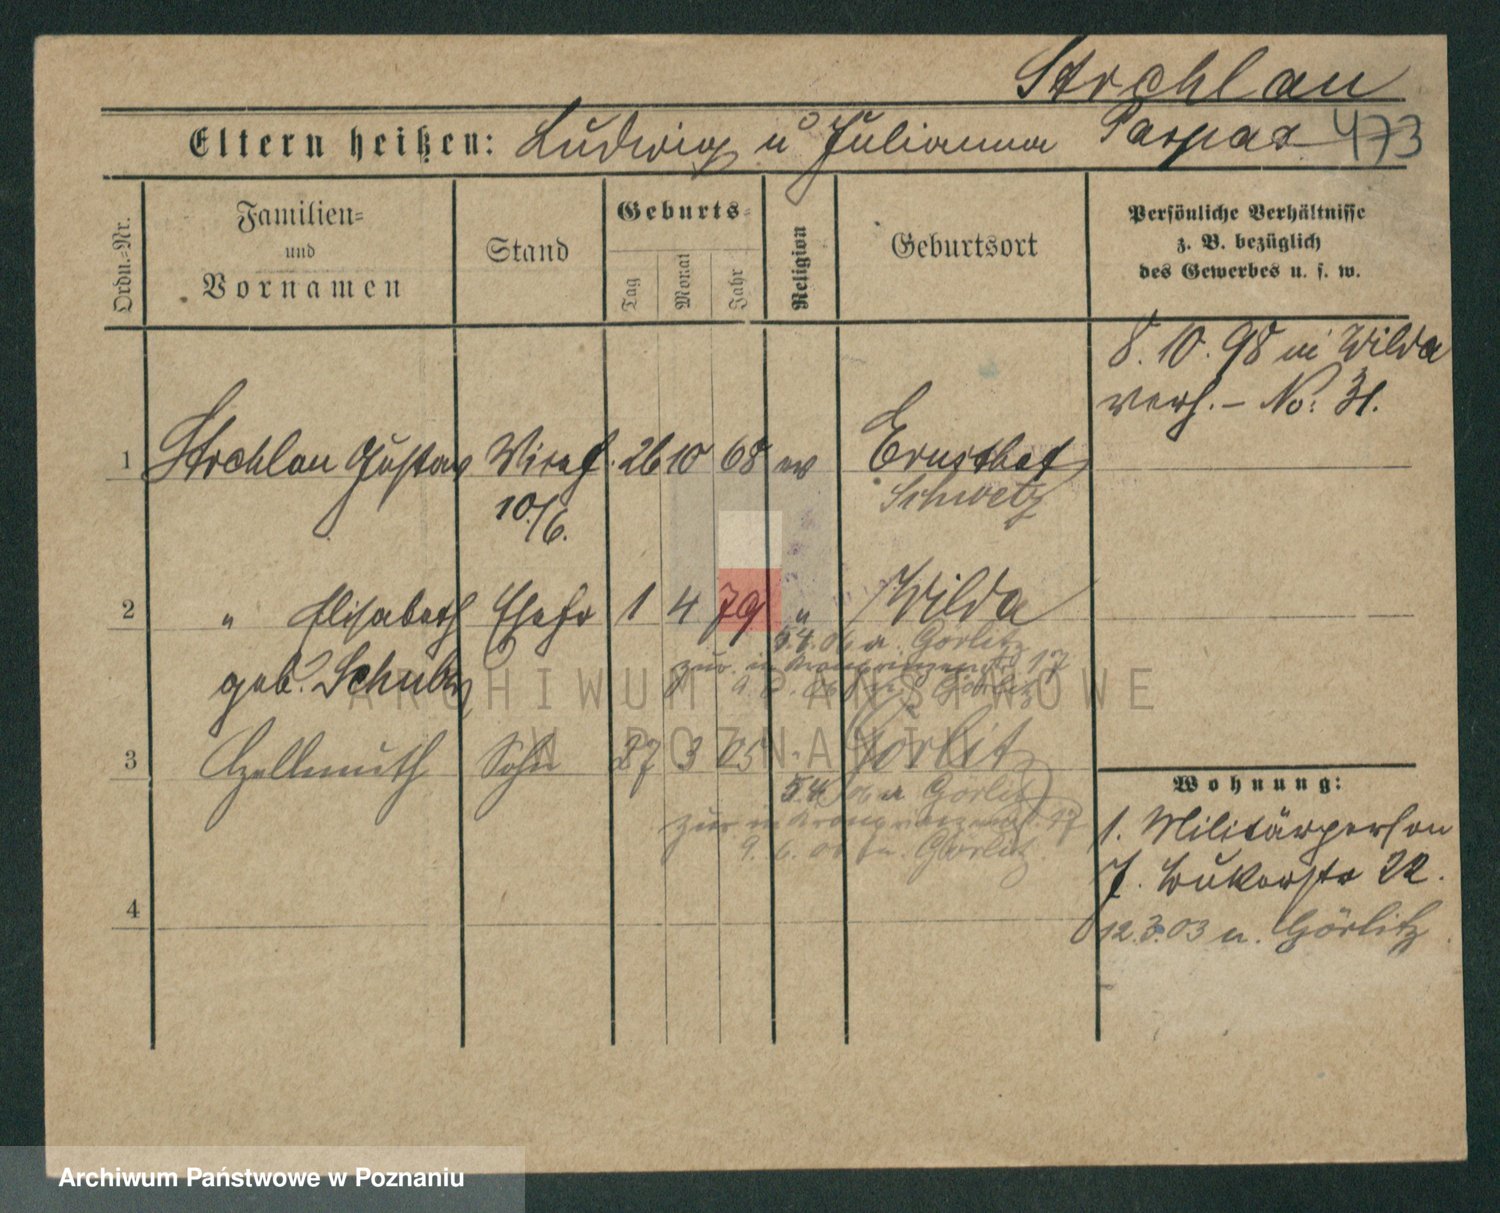 Strehlau
Eltern heißen: Ludwig u Julianna Paspar 473
Ordn.-Nr.
Familien-
und
Vornamen
Stand
Geburts-
Tag
Monat
Jahr
Religion
Geburtsort
Persönliche Verhältnisse
z. B. bezüglich
des Gewerbes u. s. w.
8. 10. 98 in Wilda
verh. – No: 31.
1 Strehlau Gustav 26 10 68 ev Ernsthof
Schwetz
10/6.
2 " Elisabeth Ehefr 1 4 79 " Wilda
5.4.06 a. Görlitz
geb. Schulz
zur. in Kronprinzenstr 17
9. 6. 06 n. Görlitz
3 Hellmuth Sohn 27 3 05 " Görlitz
5.4.06 a Görlitz
zur in Kronprinzenstr 17
9. 6. 06 n. Görlitz
4
Wohnung:
1. Militärperson
7. 22.
12.3.03 n. Görlitz
ARCHIWUM PAŃSTWOWE
W POZNANIU
Archiwum Państwowe w Poznaniu